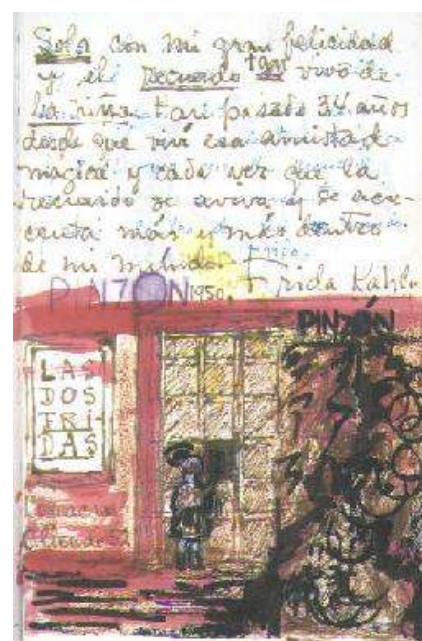 Sola con mi gran felicidad
y el recuerdo tan vivo de
la niña. Han pasado 34 años
desde que viví esa amistad
mágica y cada vez que la
recuerdo se aviva y se acre-
centa más y más dentro
de mi mundo.
PINZÓN 1950. Frida Kahlo
PINZÓN
LAS
DOS
FRI
DAS
Coyoacán